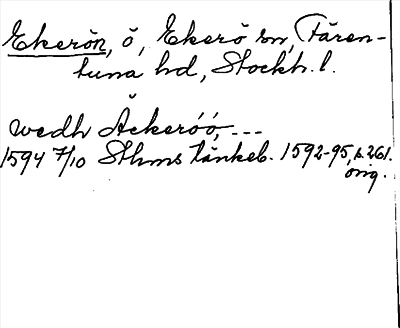 Ekerön, ö, Ekerö sn, Fären-
tuna hd, Stockh. l.
wedh Åckeröó, ---
1594 7/10 Sthms tänkeb. 1592-95, s. 261.
orig.